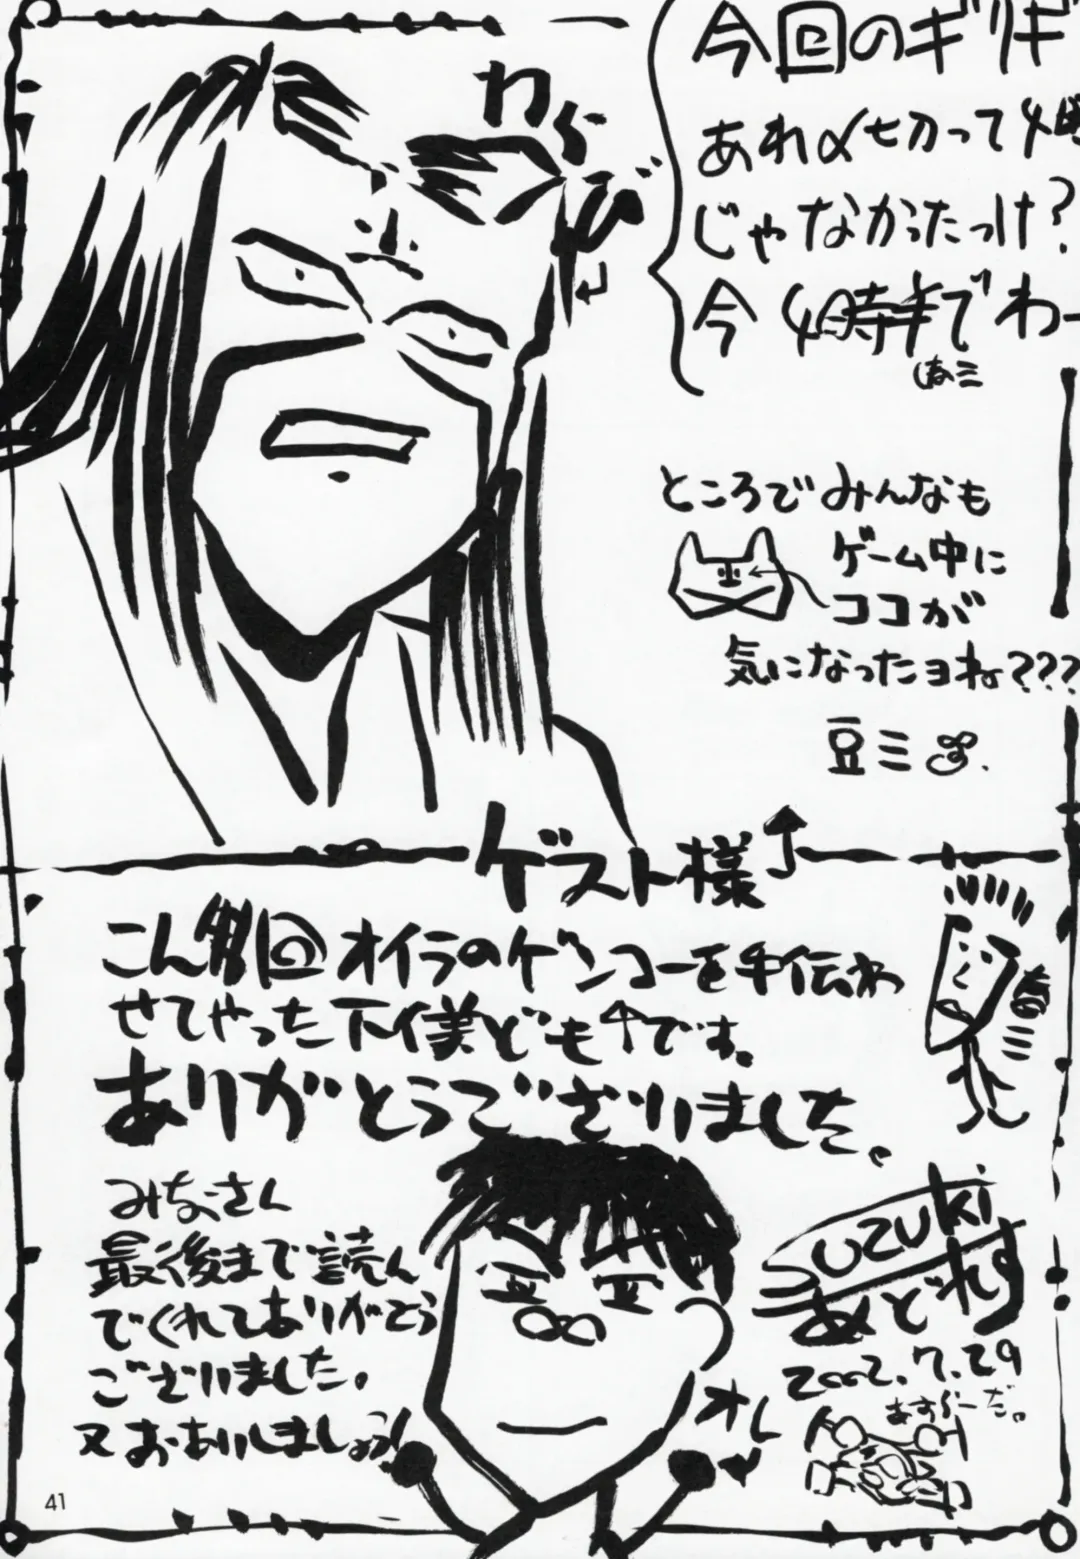 今回のギリギ
あれ〆切って4時
じゃなかったっけ?
今 4時半でわー
まミ
わらび
ところでみんなも
ゲーム中に
ココが
気になったヨね???
豆ミ
ゲスト様↑
こん回オイラのゲンコーを手伝わ
せてやった下僕ども↑です。
ありがとうございました。
春ミ
みなさん
最後まで読ん
でくれてありがとう
ございました。
又おあいしましょう!
オレ
SUZUKI
あどれす
2002.7.29
あすらーだ。
41